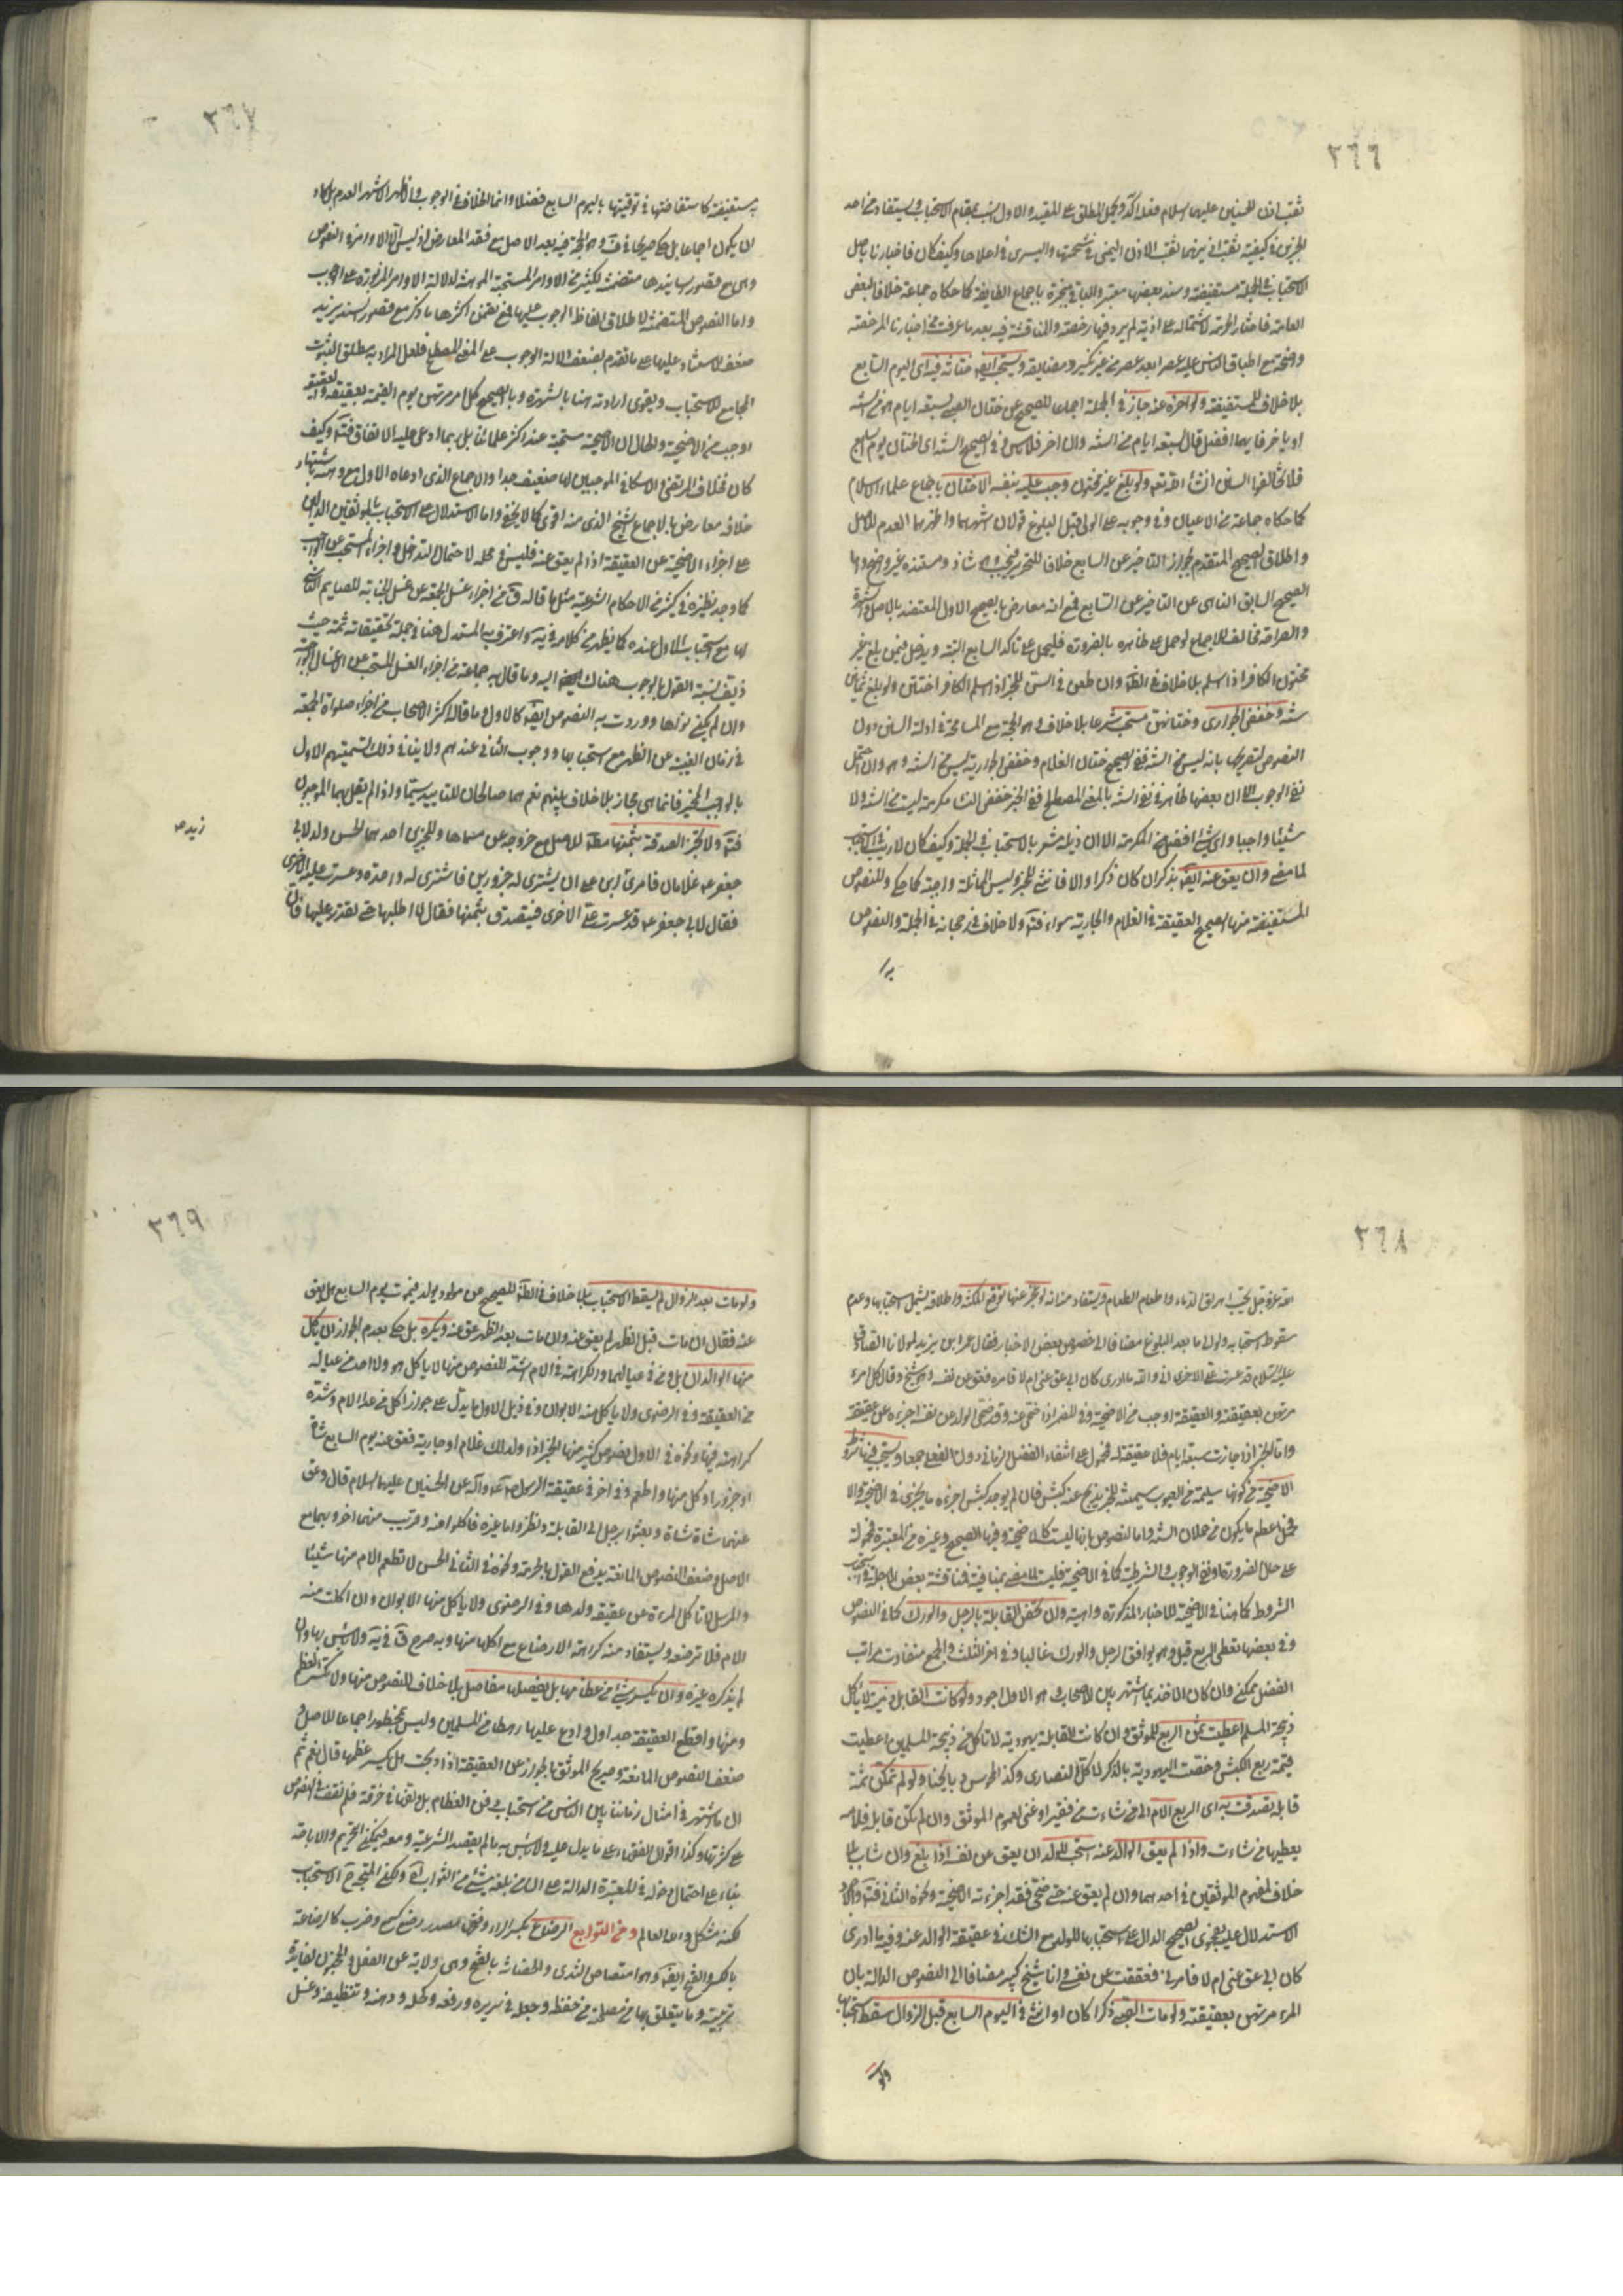 ٣٦٦
ثقب اذن الحسنين عليهما السلام فعله آكد ويحمل المطلق على المقيد والاول انسب بمقام الاستحباب ويستفاد من احد
الخبرين كيفية ثقب اذنيهما ثقب الاذن اليمنى في شحمتها واليسرى في اعلاها وكيف كان فاخبارنا باصل
الاستحباب في الجملة مستفيضة وسند بعضها معتبر والباقي منجبرة باجماع الطايفة كما حكاه جماعة خلافا لبعض
العامة فاختار الحرمة لاشتماله على اذية لم يرد فيها رخصة والمناقشة فيه بعد ما عرفت من اخبارنا المرخصة
واضحة مع اطباق الناس عليه عصرا بعد عصر من غير نكير ومضايقة ويستحب ايضا ختانه فيه اى اليوم السابع
بلا خلاف للمستفيضة ولو اخره عنه جاز في الجملة اجماعا للصحيح عن ختان الصبى لسبعة ايام هو من السنة
او يؤخر فايهما افضل قال لسبعة ايام من السنة وان اخر فلا باس وفي الصحيح السنة اى الختان يوم السابع
فلا تخالفوا السنن انشأ الله تعه ولو بلغ غير مختون وجب عليه بنفسه الاختتان باجماع علماء الاسلام
كما حكاه جماعة من الاعيان وفي وجوبه على الولى قبل البلوغ قولان اشهرهما واظهرهما العدم للاصل
واطلاق الصحيح المتقدم بجواز التاخير عن السابع خلافا للتحرير فيجب وهو شاذ ومستنده غير واضح واما
الصحيح السابق الناهى عن التاخير عن السابع فمع انه معارض بالصحيح الاول المعتضد بالاصل والشهرة
والصراحة مخالف للاجماع لو حمل على ظاهره بالضرورة فليحمل على تاكد السابع البتة ويدخل فيمن بلغ غير
مختون الكافر اذا اسلم بلا خلاف في الظ وان طعن في السن للخبر اذا اسلم الكافر اختتن ولو بلغ ثمانين
سنة وخفض الجوارى وختانهن مستحب شرعا بلا خلاف وهو الحجة مع المسامحة في ادلة السنن دون
النصوص لتصريحها بانه ليس من السنة ففى الصحيح ختان الغلام وخفض الجارية ليس من السنة وهو وان احتمل
نفى الوجوب الا ان بعضها ظاهر في نفى السنة بالمعنى المصطلح ففى الخبر خفض النساء مكرمة ليست من السنة ولا
شيئا واجبا واى شئ افضل من المكرمة الا ان ذيله مشعر بالاستحباب في الجملة وكيف كان لا ريب في الاستحباب
لما مضى وان يعق عنه ايضا بذكر ان كان ذكرا والا فانثى للخبر وليس المماثلة واجبة كما حكى وللنصوص
المستفيضة منها الصحيح العقيقة في الغلام والجارية سواء فتأمل ولا خلاف في رجحانه في الجملة والنصوص
٣٦٧
به مستفيضة كاستفاضتها في توقيتها باليوم السابع فضلا وانما الخلاف في الوجوب والاظهر الاشهر العدم بل كاد
ان يكون اجماعا بل حكى صريحا في ف وهو الحجة فيه بعد الاصل مع فقد المعارض اذ ليس الا الاوامر والنصوص
وهى مع قصور اسانيدها متضمنة لكثير من الاوامر المستحبة الموهنة لدلالة الاوامر المزبورة على الوجوب
واما النصوص المتضمنة لاطلاق لفظ الوجوب عليها فمع تضمن اكثرها ما ذكر مع قصور السند يزيد
ضعف الاستناد عليها على ما تقدم بضعف دلالة الوجوب على المعنى المصطلح فلعل المراد به مطلق الثبوت
الجامع للاستحباب ويقوى ارادته هنا بالشهرة وبالصحيح كل امرء مرتهن يوم القيمة بعقيقته والعقيقة
اوجب من الاضحية والحال ان الاضحية مستحبة عند اكثر علمائنا بل ربما ادعى عليه الاتفاق فتأمل وكيف
كان فخلاف المرتضى والاسكافى الموجبين لها ضعيف جدا والاجماع الذى ادعاه الاول مع وهنه باشتهار
خلافه معارض بالاجماع الشيخ الذى منه اقوى كما لا يخفى واما الاستدلال على الاستحباب بالموثقين الدالين
على اجزاء الاضحية عن العقيقة اذا لم يعق عنه فليس في محله لاحتمال التداخل واجزاء المستحب عن الواجب
كما وجد نظيره في كثير من الاحكام الشرعية مثل ما قاله ق من اجزاء غسل الجمعة عن غسل الجنابة للصايم الناسى
لها مع استحباب الاول عنده كما يظهر من كلامه فيه واعترف به المستدل هنا في جملة تحقيقاته ثمة حيث
زيف نسبة القول بالوجوب هناك اليه وما قال به جماعة من اجزاء الغسل المستحب عن الاغسال الواجبة
وان لم يكن نواها ووردت به النصوص ايضا كالاول وما قاله اكثر الاصحاب من اجزاء صلواة الجمعة
في زمان الغيبة عن الظهر مع استحبابها ووجوب الثانى عندهم ولا ينافى ذلك تسميتهم الاول
بالواجب المخير فانما هى مجاز بلا خلاف بينهم نعم هما صالحان للتاييد سيما واذا لم يقل بهما الموجبون
فتأمل ولا تجزى الصدقة بثمنها مطلقا للاصل مع خروجه عن مسماها وللخبرين احدهما الحسن ولد لابى
جعفر ع غلامان فامر زيد بن على ان يشترى له جزورين فاشترى له واحدة وعسرت عليه الاخرى
فقال لابى جعفر ع قد عسرت على الاخرى فيتصدق بثمنها فقال لا اطلبها حتى تقدر عليها فان
٣٦٨
الله عز وجل يحب اهراق الدماء واطعام الطعام ويستفاد منه انه لو عجز عنها توقع المكنة واطلاقه يشمل استحبابها وعدم
سقوط استحبابه ولو الى ما بعد البلوغ مضافا الى خصوص بعض الاخبار فقال عمر ابن يزيد لمولانا الصادق
عليه السلام انى والله ما ادرى كان ابى عق عنى ام لا فامره فعق عن نفسه وهو شيخ وقال كل امرء
مرتهن بعقيقته والعقيقة اوجب من الاضحية وفي الخبر اذا ضحى عنه وقد ضحى الولد عن نفسه اجزءه عن عقيقته
واما الخبر اذا جازت سبعة ايام فلا عقيقة له فمحمول على انتفاء الفضل الزمانى دون الفعلى جمعا ويستحب فيها شروط
الاضحية من كونها سليمة من العيوب سمينة للخبر يذبح عنه كبش فان لم يوجد كبش اجزءه ما يجزى في الاضحية والا
فحمل اعظم ما يكون من حملان السنة واما النصوص بانها ليست كالاضحية وفيها الصحيح وغيره من المعتبرة فمحمولة
على حال الضرورة او نفى الوجوب والشرطية كما في الاضحية فليست للمضى بمنافية فمناقشة بعض الاجلة في استحباب
الشروط كما هنا في الاضحية للاخبار المذكورة واهية وان تختص القابلة بالرجل والورك كما في النصوص
وفي بعضها تعطى الربع قيل وهو يوافق الرجل والورك غالبا وفي اخر الثلث والجمع بتفاوت مراتب
الفضل ممكن وان كان الاخذ بما اشتهر بين الاصحاب وهو الاول اجود ولو كانت القابلة ذمية لا تأكل
ذبيحة المسلم اعطيت ثمن الربع للموثق وان كانت القابلة يهودية لا تاكل من ذبيحة المسلمين اعطيت
قيمة ربع الكبش وخصت اليهودية بالذكر لاكل النصارى وكذا المجوس ذبايحنا ولو لم تكن ثمة
قابلة تصدقت به اى الربع الام الى من شاءت من فقير او غنى لعموم الموثق وان لم تكن قابلة فلامه
يعطيها من شاءت واذا لم يعق الوالد عنه استحب للولد ان يعق عن نفسه اذا بلغ وان شاب بلا
خلاف لمفهوم الموثقين في احدهما وان لم يعق عنه حتى ضحى فقد اجزءته الاضحية ونحوه الثانى فتأمل والاجود
الاستدلال عليه بفحوى الصحيح الدال على استحبابها للولد مع الشك في عقيقة الوالد عنه وفيه ما ادرى
كان ابى عق عنى ام لا فامرنى فعققت عن نفسى وانا شيخ كبير مضافا الى النصوص الدالة بان
المرء مرتهن بعقيقته ولو مات الصبى ذكرا كان او انثى في اليوم السابع قبل الزوال سقط استحبابها
ولو
٣٦٩
ولو مات بعد الزوال لم يسقط الاستحباب بلا خلاف في الظ للصحيح عن مولود يولد فيموت يوم السابع هل يعق
عنه فقال ان مات قبل الظهر لم يعق عنه وان مات بعد الظهر عق عنه ويكره بل حكى بعدم الجواز ان يأكل
منها الوالدان بل ومن في عيالهما والكراهة في الام اشد للنصوص منها لا ياكل هو ولا احد من عياله
من العقيقة وفي الرضوى ولا ياكل منه الابوان وفي ذيل الاول ما يدل على جواز اكل من عدا الام وشدة
كراهته فيها ونحوه في الاول نصوص كثير منها الخبر اذا ولد لك غلام او جارية فعق عنه يوم السابع شاة
او جزورا وكل منها واطعم وفي اخر في عقيقة الرسول صلى الله عليه وآله عن الحسنين عليهما السلام قال وعق
عنهما شاة شاة وبعثوا برجل الى القابلة ونظروا ما غيره فاكلوا منه وقريب منهما اخر وبهما مع
الاصل وضعف النصوص المانعة يندفع القول بالحرمة ونحوه في الثانى الحسن لا تطعم الام منها شيئا
والمرسل لا تاكل المرءة من عقيقة ولدها وفي الرضوى ولا ياكل منها الابوان وان اكلت منه
الام فلا ترضعه ويستفاد منه كراهة الارضاع مع اكلها منها وبه صرح ق في يه ولا باس بها وان
لم يذكره غيره وان يكسر شئ من عظامها بل يفصلها مفاصل بلا خلاف للنصوص منها ولا تكسر العظم
ومنها واقطع العقيقة جداول وادع عليها رهطا من المسلمين وليس بمحظور اجماعا للاصل و
ضعف النصوص المانعة وصريح الموثق بالجواز عن العقيقة اذا ذبحت هل يكسر عظمها قال نعم ثم
ان ما اشتهر في امثال زماننا بين الناس من استحباب دفن العظام بل ولفها في خرقة فلم نقف في النصوص
على كثرتها وكذا اقوال الفقهاء على ما يدل عليه ولا باس به ما لم يقصد الشرعية ومعه فيمكن التحريم والاباحة
بناء على احتمال دخوله في المعتبرة الدالة على ان من بلغه شئ من الثواب الخ ويمكن الاستحباب
لكنه مشكل والله العالم ومن التوابع الرضاع بكسر الراء وفتحها مصدر رضع كسمع وضرب كالرضاعة
بالكسر والفتح ايضا وهو امتصاص الثدى والحضانة بالفتح وهى ولاية على الطفل والمجنون لفايدة
تربيته وما يتعلق بها من مصلحته من حفظه وجعله في سريره ورفعه وكحله ودهنه وتنظيفه وغسل